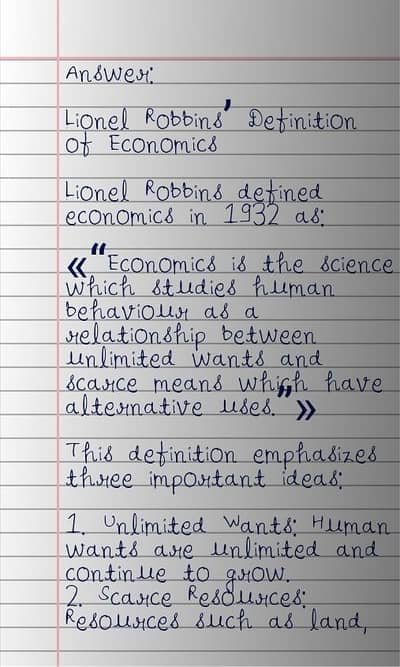 Answer:
Lionel Robbins' Definition
of Economics
Lionel Robbins defined
economics in 1932 as:
«"Economics is the science
which studies human
behaviour as a
relationship between
unlimited wants and
scarce means which have
alternative uses."»
This definition emphasizes
three important ideas:
1. Unlimited Wants: Human
wants are unlimited and
continue to grow.
2. Scarce Resources:
Resources such as land,